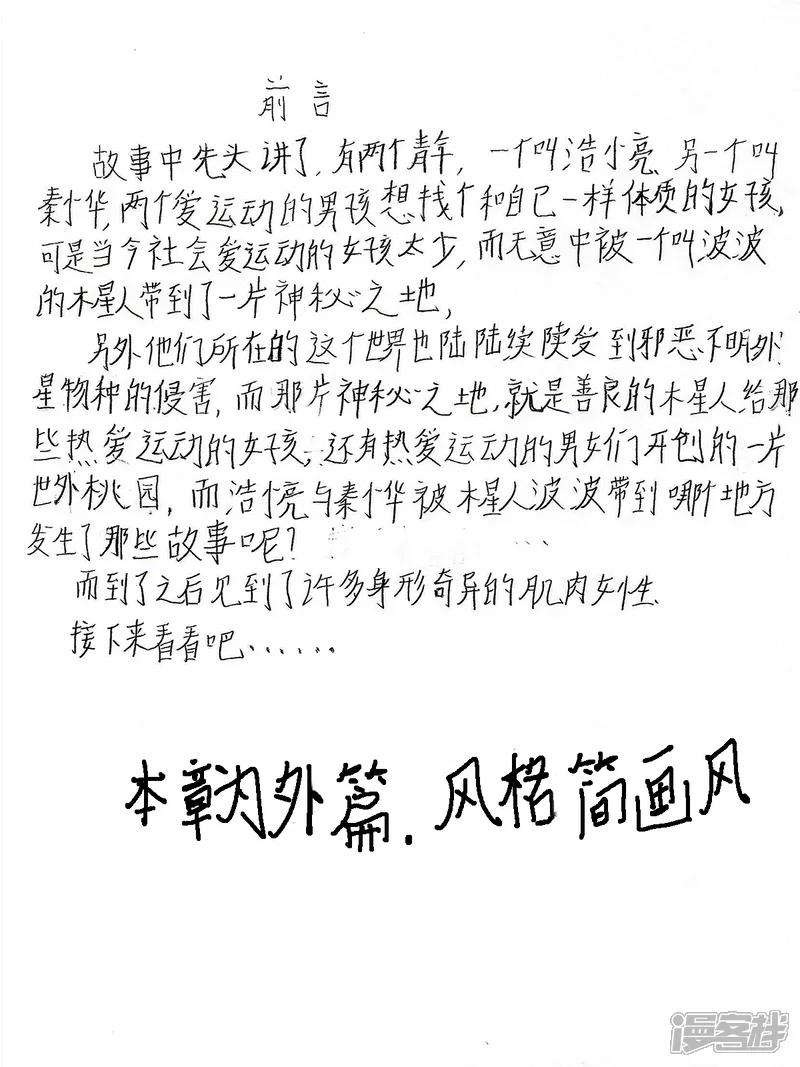 前言
故事中先头讲了,有两个青年,一个叫浩小亮,另一个叫
秦小华,两个爱运动的男孩想找个和自己一样体质的女孩,
可是当今社会爱运动的女孩太少,而无意中被一个叫波波
的木星人带到了一片神秘之地,
另外他们所在的这个世界也陆陆续续受到邪恶不明外
星物种的侵害,而那片神秘之地,就是善良的木星人给那
些热爱运动的女孩,还有热爱运动的男女们开创的一片
世外桃园,而浩小亮与秦小华被木星人波波带到哪个地方
发生了那些故事呢?
而到了之后见到了许多身形奇异的肌肉女性.
接下来看看吧......
本章为外篇.风格简画风
漫客栈